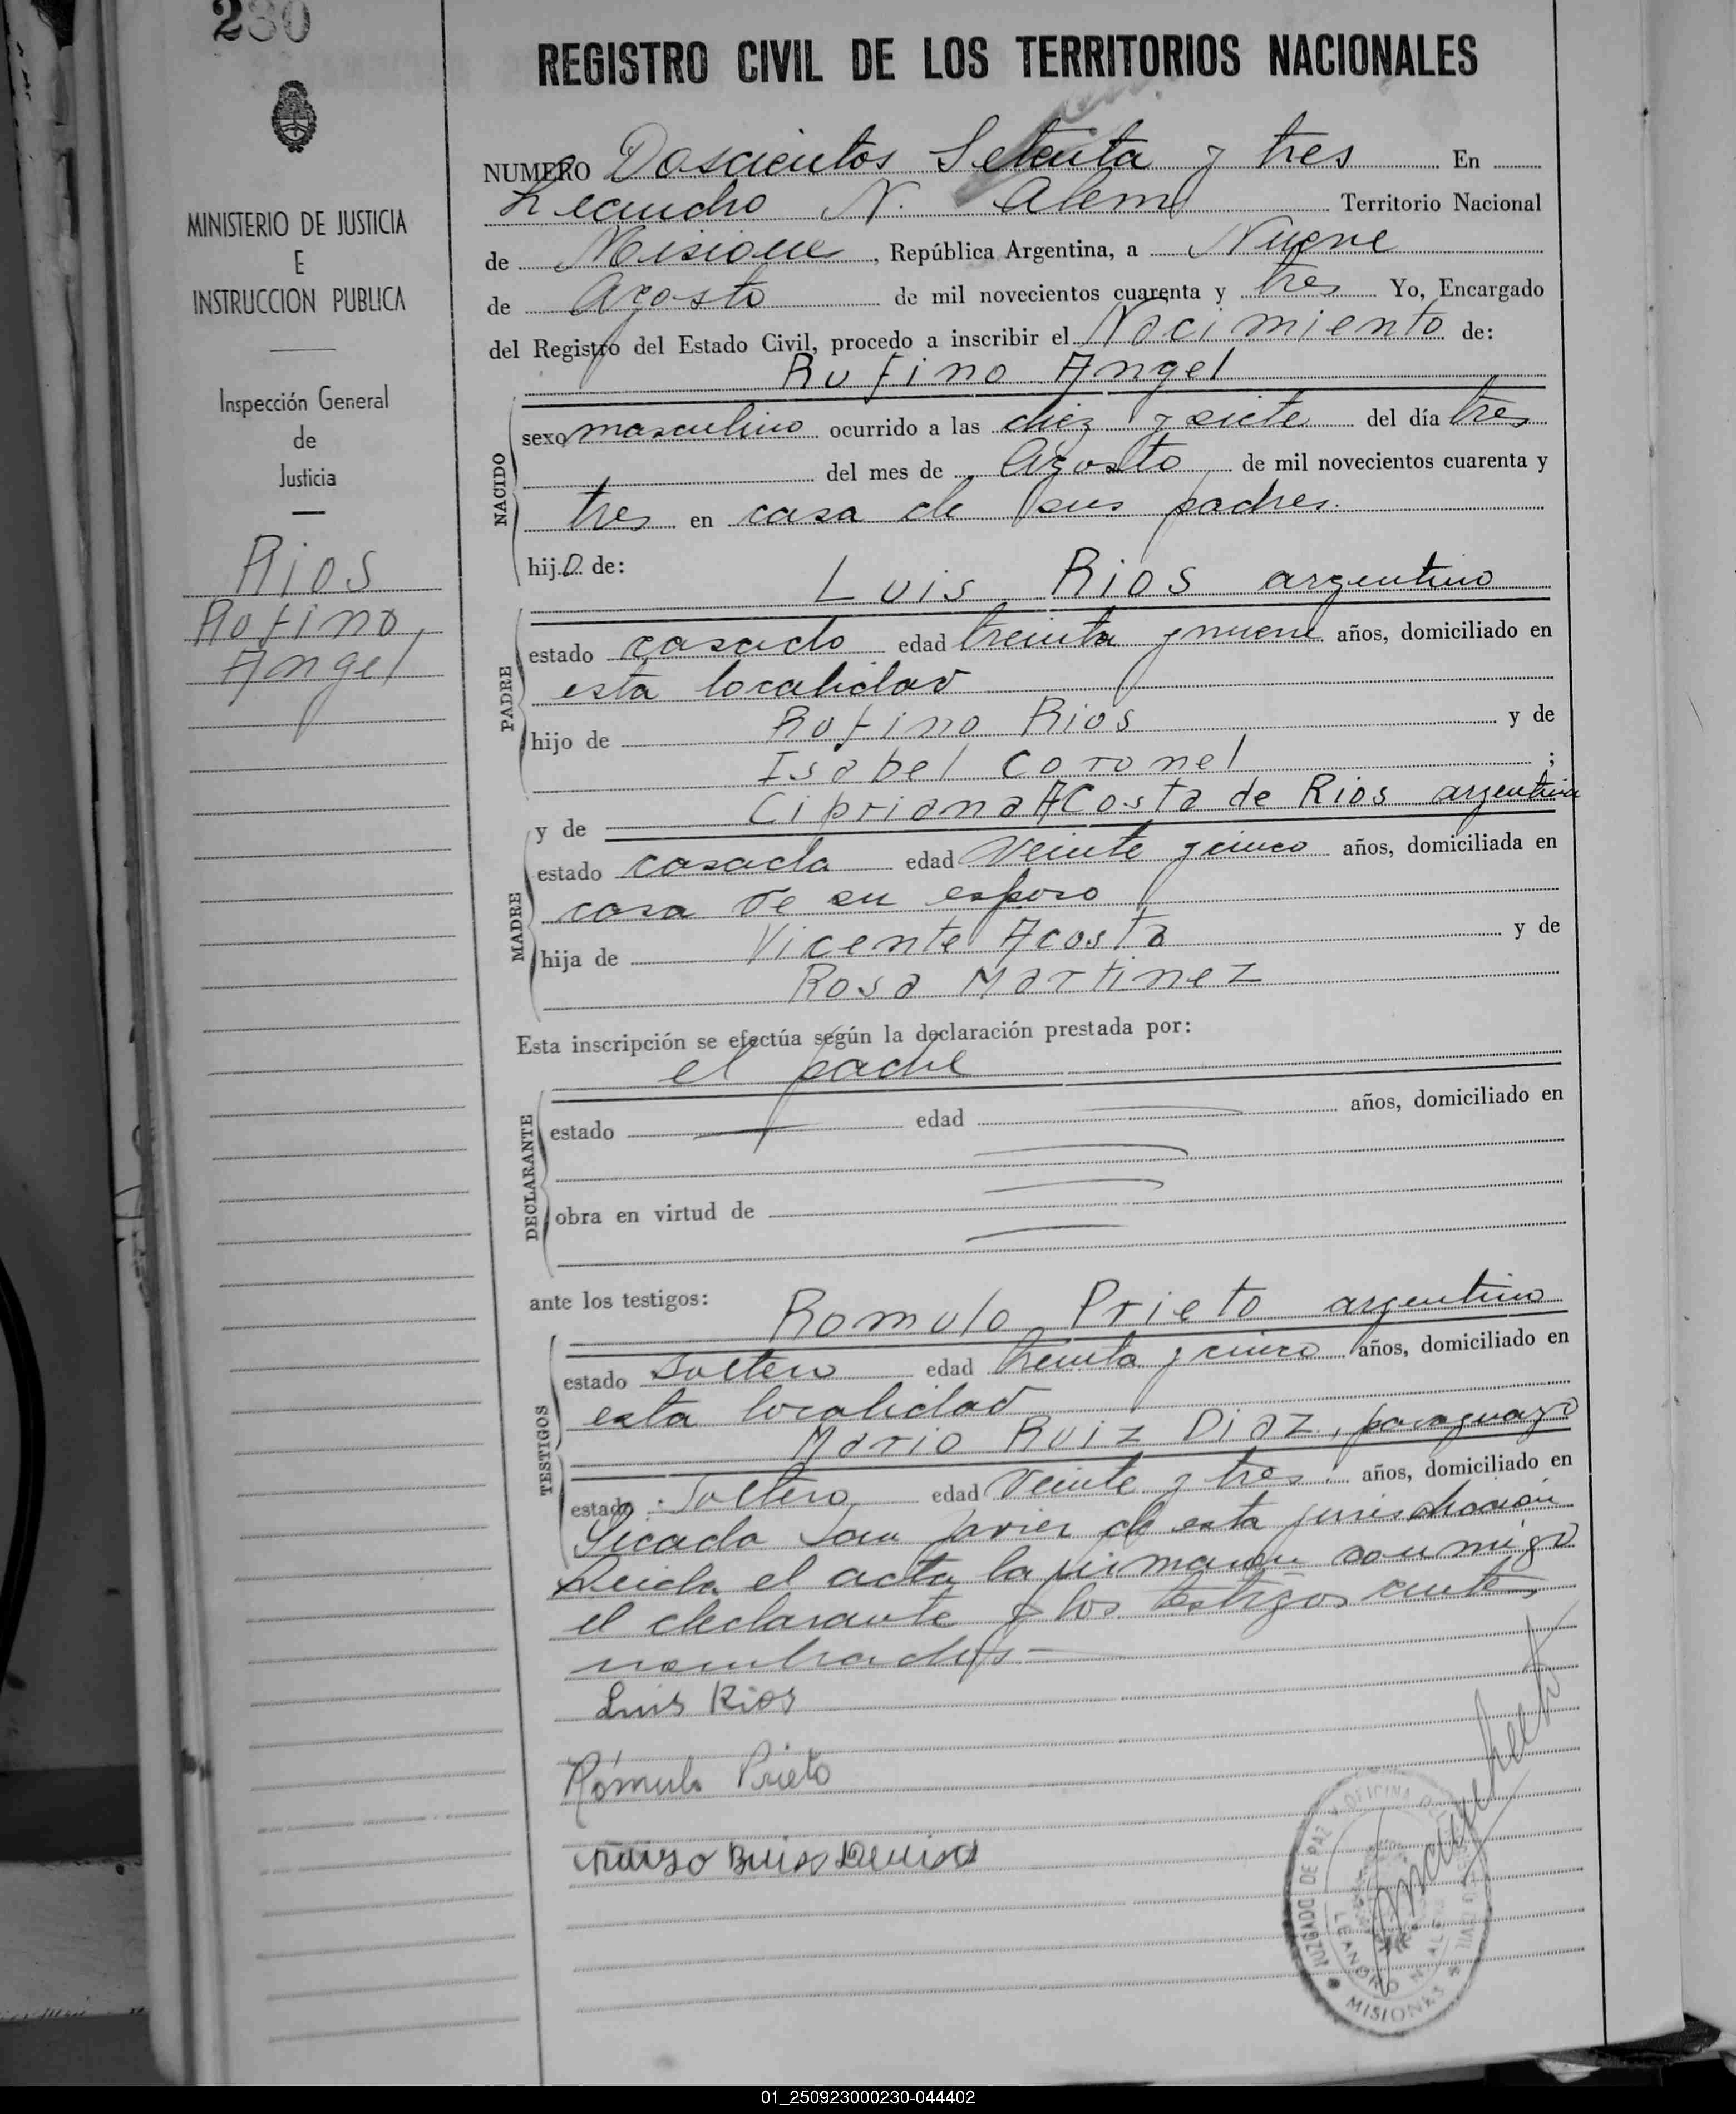 230
REGISTRO CIVIL DE LOS TERRITORIOS NACIONALES
MINISTERIO DE JUSTICIA
E
INSTRUCCION PUBLICA
Inspección General
de
Justicia
Rios
Rufino,
Angel
NUMERO Doscientos Setenta y tres En
Leandro N. Alem Territorio Nacional
de Misiones, República Argentina, a Nueve
de Agosto de mil novecientos cuarenta y tres Yo, Encargado
del Registro del Estado Civil, procedo a inscribir el Nacimiento de:
Rufino Angel
NACIDO
sexo masculino ocurrido a las diez y siete del día tres
del mes de Agosto de mil novecientos cuarenta y
tres en casa de sus padres.
hijo de:
Luis Rios argentino
PADRE
estado casado edad treinta y nueve años, domiciliado en
esta localidad
hijo de Rufino Rios y de
Isabel Coronel ;
y de Cipriana Acosta de Rios argentina
MADRE
estado casada edad Veinte y cinco años, domiciliada en
casa de su esposo
hija de Vicente Acosta y de
Rosa Martinez
Esta inscripción se efectúa según la declaración prestada por:
el padre
DECLARANTE
estado edad años, domiciliado en
obra en virtud de
ante los testigos:
Romulo Prieto argentino
TESTIGOS
estado Soltero edad treinta y cinco años, domiciliado en
esta localidad
Mario Ruiz Diaz, paraguayo
estado Soltero edad Veinte y tres años, domiciliado en
Picada San Javier de esta jurisdicción
Leida el acta la firmaron conmigo
el declarante y los testigos antes
nombrados.-
Luis Rios
Rómulo Prieto
JUZGADO DE PAZ Y OFICINA DEL REGISTRO CIVIL
LEANDRO N. ALEM
MISIONES
01_250923000230-044402